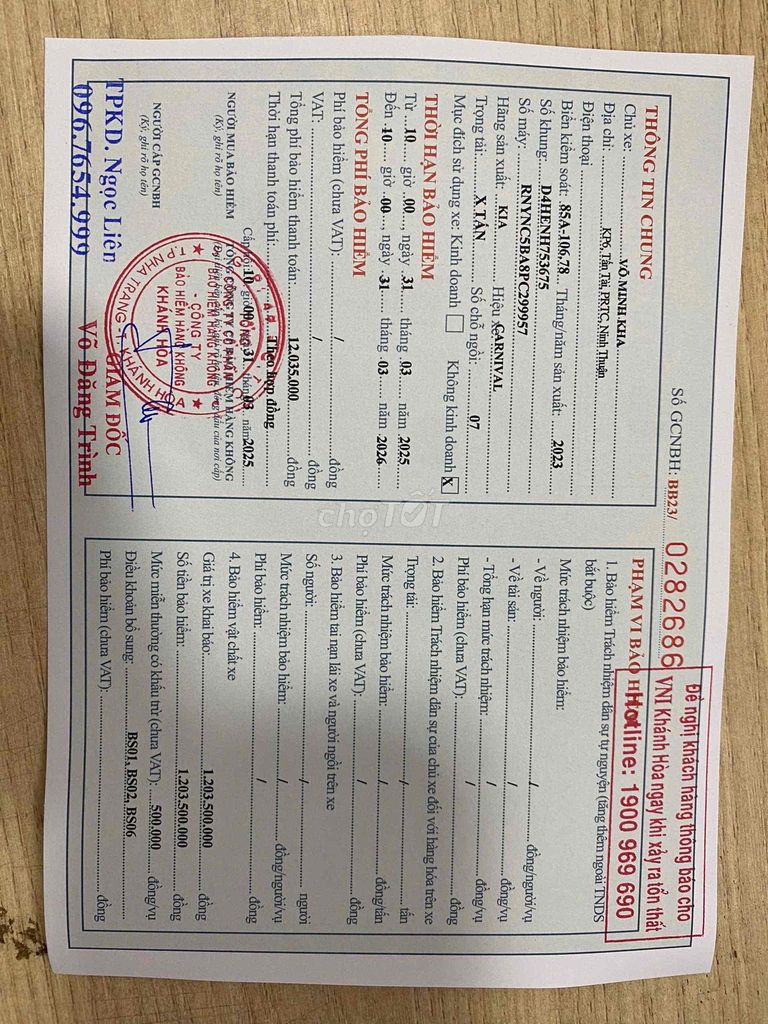 Số GCNBH: BB23/ 0282686
Đề nghị khách hàng thông báo cho
VNI Khánh Hòa ngay khi xảy ra tổn thất
Hotline: 1900 969 690
THÔNG TIN CHUNG
Chủ xe: VÕ MINH KHA
Địa chỉ: KP6, Tấn Tài, PRTC, Ninh Thuận
Điện thoại
Biển kiểm soát: 85A-106.78 Tháng/năm sản xuất: 2023
Số khung: D4HENH753675
Số máy: RNYNC5BA8PC299957
Hãng sản xuất: KIA Hiệu xe: CARNIVAL
Trọng tải: X TẤN Số chỗ ngồi: 07
Mục đích sử dụng xe: Kinh doanh Không kinh doanh X
THỜI HẠN BẢO HIỂM
Từ 10 giờ 00, ngày 31 tháng 03 năm 2025
Đến 10 giờ 00, ngày 31 tháng 03 năm 2026
TỔNG PHÍ BẢO HIỂM
Phí bảo hiểm (chưa VAT): / đồng
VAT: / đồng
Tổng phí bảo hiểm thanh toán: 12.035.000 đồng
Thời hạn thanh toán phí: Theo hợp đồng
Cấp hồi 10 giờ 00 31 tháng 03 năm 2025
NGƯỜI MUA BẢO HIỂM
(Ký, ghi rõ họ tên)
TỔNG CÔNG TY CỔ PHẦN BẢO HIỂM HÀNG KHÔNG
NGƯỜI CẤP GCNBH
(Ký, ghi rõ họ tên)
CÔNG TY
BẢO HIỂM HÀNG KHÔNG
KHÁNH HÒA
T.P NHA TRANG - T. KHÁNH HÒA
GIÁM ĐỐC
Võ Đăng Trình
TPKD. Ngọc Liên
096.7654.999
PHẠM VI BẢO HIỂM
1. Bảo hiểm Trách nhiệm dân sự tự nguyện (tăng thêm ngoài TNDS
bắt buộc)
Mức trách nhiệm bảo hiểm:
- Về người: / đồng/người/vụ
- Về tài sản: / đồng/vụ
- Tổng hạn mức trách nhiệm: / đồng/vụ
Phí bảo hiểm (chưa VAT): đồng
2. Bảo hiểm Trách nhiệm dân sự của chủ xe đối với hàng hóa trên xe
Trọng tải: / tấn
Mức trách nhiệm bảo hiểm: / đồng/tấn
Phí bảo hiểm (chưa VAT): / đồng
3. Bảo hiểm tai nạn lái xe và người ngồi trên xe
Số người: / người
Mức trách nhiệm bảo hiểm: / đồng/người/vụ
Phí bảo hiểm: / đồng
4. Bảo hiểm vật chất xe
Giá trị xe khai báo: 1.203.500.000 đồng
Số tiền bảo hiểm: 1.203.500.000 đồng
Mức miễn thường có khấu trừ (chưa VAT): 500.000 đồng/vụ
Điều khoản bổ sung: BS01, BS02, BS06
Phí bảo hiểm (chưa VAT): đồng
chợ TỐT